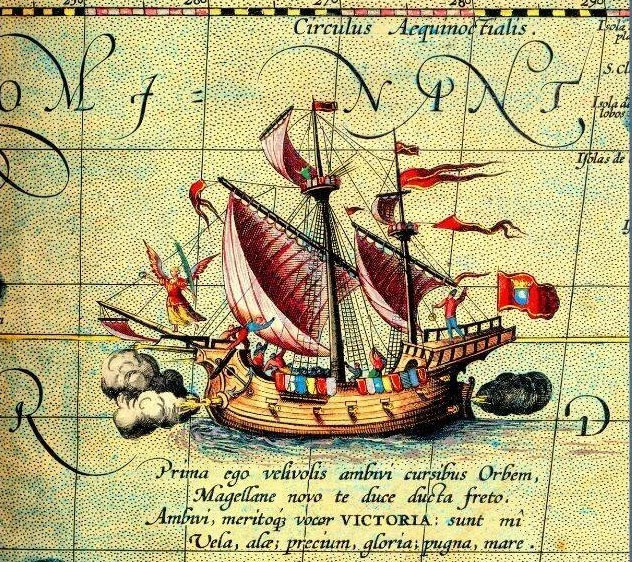 260 270 280 290
Circulus Aequinoctialis.
S. Cl
lobos
Isolas de
R D
Prima ego velivolis ambivi cursibus Orbem,
Magellane novo te duce ducta freto.
Ambivi, meritoq; vocor VICTORIA: sunt mî
Vela, alæ; precium, gloria; pugna, mare.